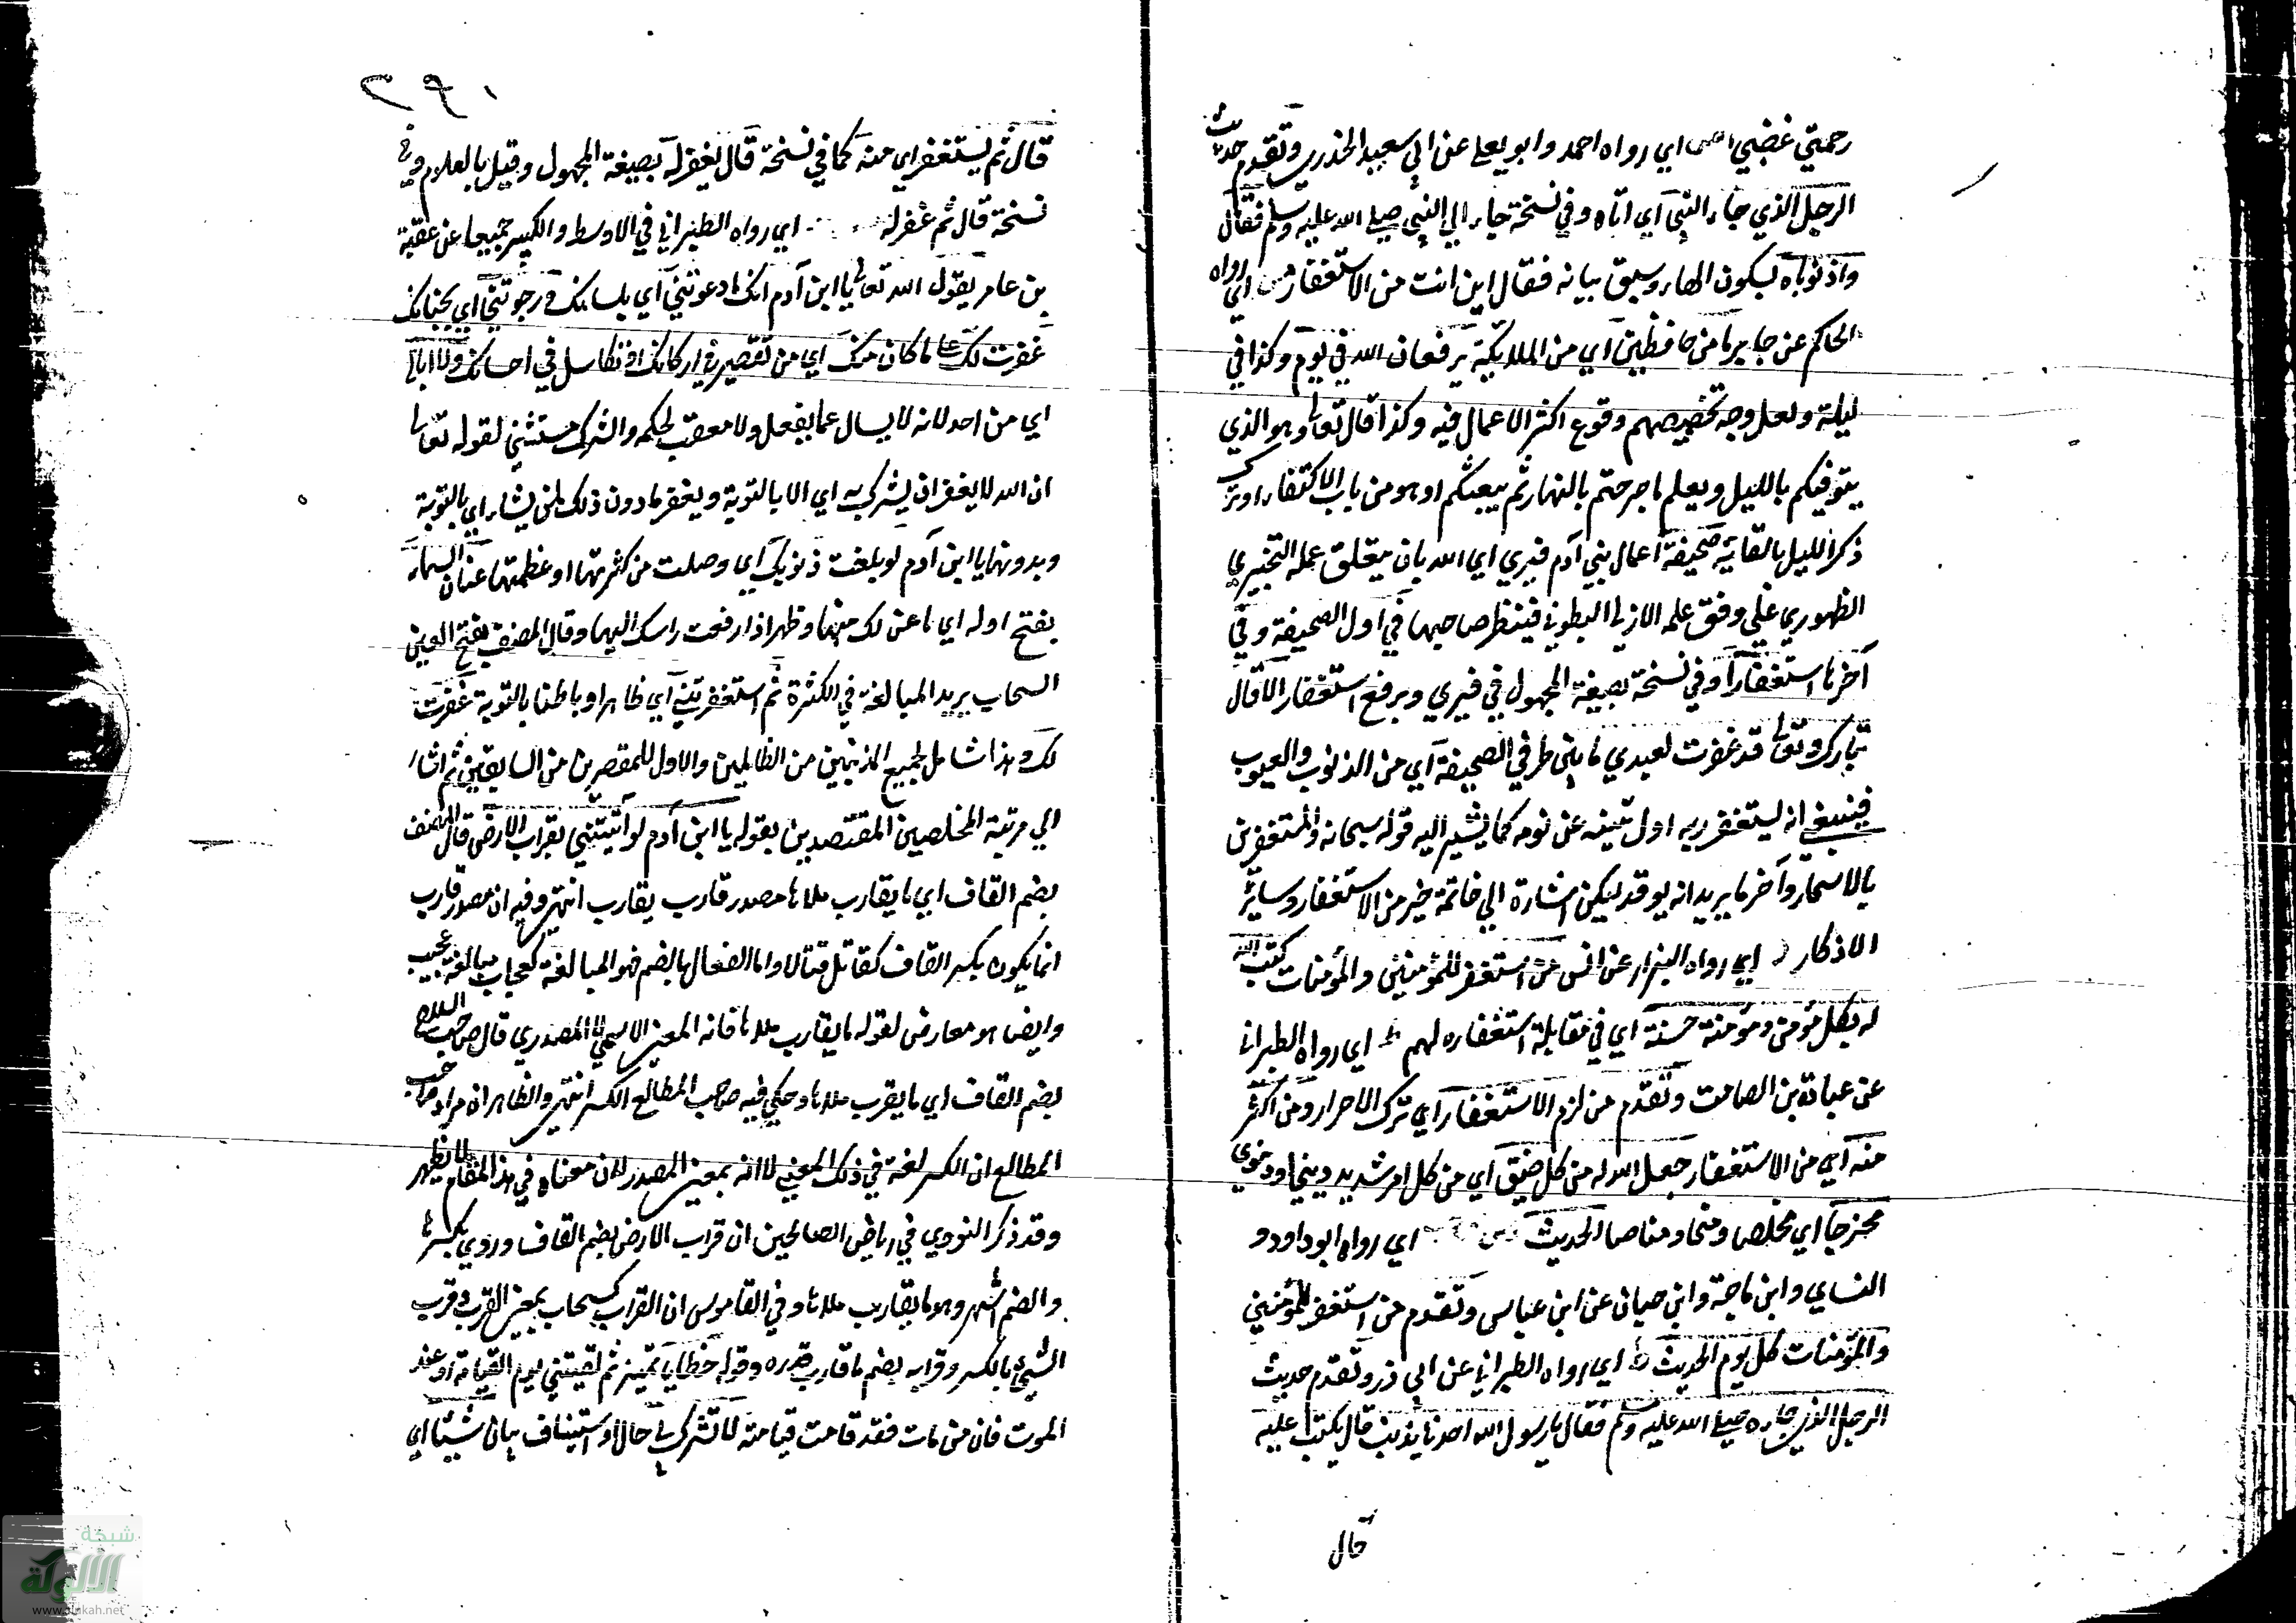 رحمتي غضبي اي رواه احمد وابو يعلى عن ابي سعيد الخدري وتقدم حديث
الرجل الذي جاء النبي اي اتاه وفي نسخة جاء الى النبي صلى الله عليه وسلم فقال
واذنوباه بسكون الهاء وسبق بيانه فقال اين انت من الاستغفار اي رواه
الحاكم عن جابر ما من حافظين اي من الملائكة يرفعان الله في يوم وكذا في
ليلة ولعل وجه تخصيصهم وقوع اكثر الاعمال فيه وكذا قال تعالى وهو الذي
يتوفيكم بالليل ويعلم ما جرحتم بالنهار ثم يبعثكم او هو من باب الاكتفاء او ترك
ذكر الليل بالقاية صحيفة اعمال بني آدم فيري اي الله بان يتعلق علمه التخييري
الظهوري على وفق علمه الازلي البطوني فينظر صاحبها في اول الصحيفة وفي
آخرها استغفارا وفي نسخة بصيغة المجهول في فيري وبرفع استغفار الا قال
تبارك وتعالى قد غفرت لعبدي ما بين طرفي الصحيفة اي من الذنوب والعيوب
فينبغي انه يستغفر ربه اول تنبهه عن نومه كما يشير اليه قوله سبحانه والمستغفرين
بالاسحار وآخر ما يريد انه يرقد ليكن اشارة الي خاتمة خير من الاستغفار وسائر
الاذكار ر اي رواه البزار عن انس من استغفر للمؤمنين والمؤمنات كتب الله
له بكل مؤمن ومؤمنة حسنة اي في مقابلة استغفاره لهم ط اي رواه الطبراني
عن عبادة بن الصامت وتقدم من لزم الاستغفار اي ترك الاصرار ومن اكثر
منه اي من الاستغفار جعل الله له من كل ضيق اي من كل امر شديد ديني او دنيوي
مخرجا اي مخلصا ومنجا ومناصا الحديث اي رواه ابو داود و
النساي وابن ماجة وابن حبان عن ابن عباس وتقدم من استغفر للمؤمنين
والمؤمنات كل يوم الحديث ط اي رواه الطبراني عن ابي ذر وتقدم حديث
الرجل الذي جاءه صلى الله عليه وسلم فقال يا رسول الله احدنا يذنب قال يكتب عليه
قال
قال ثم يستغفر اي منه كما في نسخة قال يغفر له بصيغة المجهول وقيل بالعلام وفي
نسخة قال ثم غفر له اي رواه الطبراني في الاوسط والكبير جميعا عن عقبة
بن عامر يقول الله تعالى يا ابن آدم انك ما دعوتني اي بلسانك ورجوتني اي بجنانك
غفرت لك على ما كان منك اي من تقصير في اركانك او تكاسل في احسانك ولا ابالي
اي من احد لانه لا يسال عما يفعل ولا معقب لحكمه والشرك مستثنى لقوله تعالى
ان الله لا يغفر ان يشرك به اي الا بالتوبة ويغفر ما دون ذلك لمن يشاء اي بالتوبة
وبدونها يا ابن آدم لو بلغت ذنوبك اي وصلت من كثرتها او عظمتها عنان السماء
بفتح اوله اي ما عن لك منها وظهر اذا رفعت راسك اليها وقال المصنف بفتح العين
السحاب يريد المبالغة في الكثرة ثم استغفرتني اي ظاهرا وباطنا بالتوبة غفرت
لك وهذا شامل لجميع المذنبين من الظالمين والاول للمقصرين من السابقين ثم اشار
الي مرتبة المخلصين المقتصدين بقوله يا ابن آدم لو آتيتني بقراب الارض قال المصنف
بضم القاف اي ما يقارب ملاها مصدر قارب يقارب انتهى وفيه ان مصدر قارب
انما يكون بكسر القاف كقاتل قتالا واما الفعال بالضم فهو المبالغة كعجاب مبالغة عجيب
وايضا هو معارض لقوله ما يقارب ملاها فانه المعنى الاسمي لا المصدري قال صاحب السلاح
بضم القاف اي ما يقرب ملاها وحكي فيه صاحب المطالع الكسر انتهى والظاهر ان مراد صاحب
المطالع ان الكسر لغة في ذلك المعنى لا انه بمعنى المصدر لان معناه في هذا المقام لا يظهر
وقد ذكر النووي في رياض الصالحين ان قراب الارض بضم القاف وروي بكسرها
والضم اشهر وهو ما يقارب ملاها وفي القاموس ان القراب كسحاب بمعنى القرب وقرب
الشيئ بالكسر وقرابه بضم ما قارب قدره وقوله خطايا تمييز ثم لقيتني يوم القيامة او عند
الموت فان من مات فقد قامت قيامته لا تشرك بي حال او استيناف بيان شيئا اي